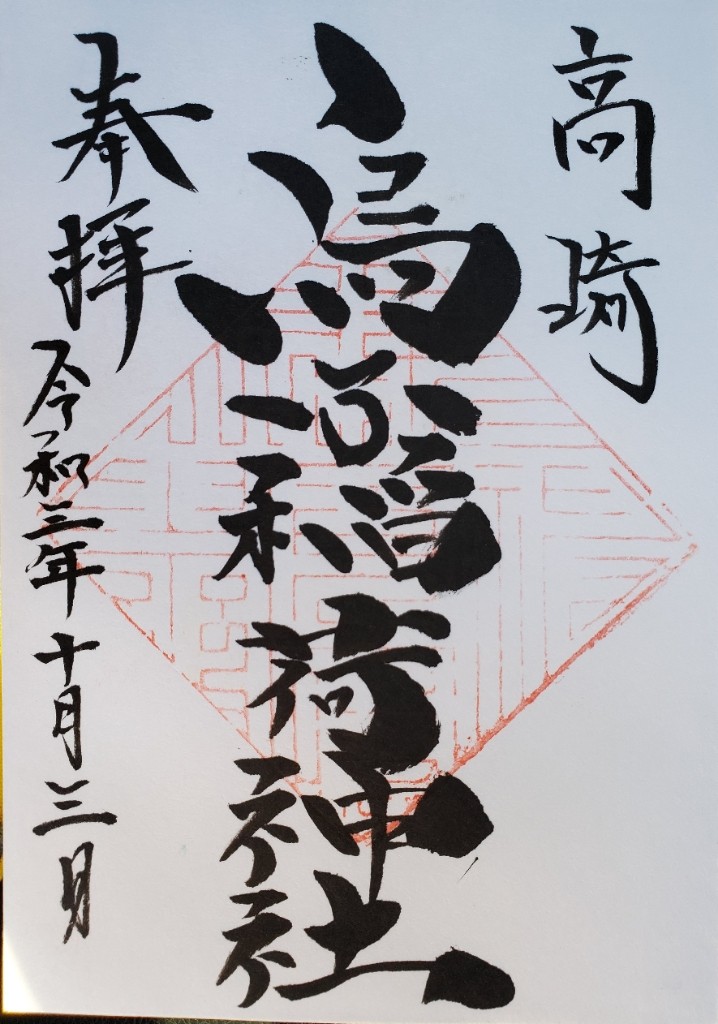 高崎
烏子稲荷神社
奉拝
令和三年十月三日